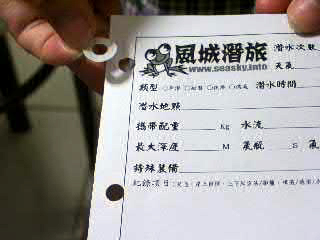 風城潛旅 潛水次數
www.seasky.info 天氣
類型 潛水時間
潛水地點
攜帶配重 Kg 水流
最大深度 M 氣瓶 S 氣
特殊裝備
紀錄項目